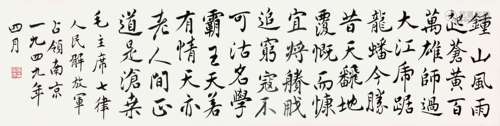 鍾山風雨
起蒼黄百
萬雄師過
大江虎踞
龍蟠今勝
昔天翻地
覆慨而慷
宜將賸勇
追窮寇不
可沽名學
霸王天若
有情天亦
老人間正
道是滄桑
毛主席七律
人民解放軍
占領南京
一九四九年
四月